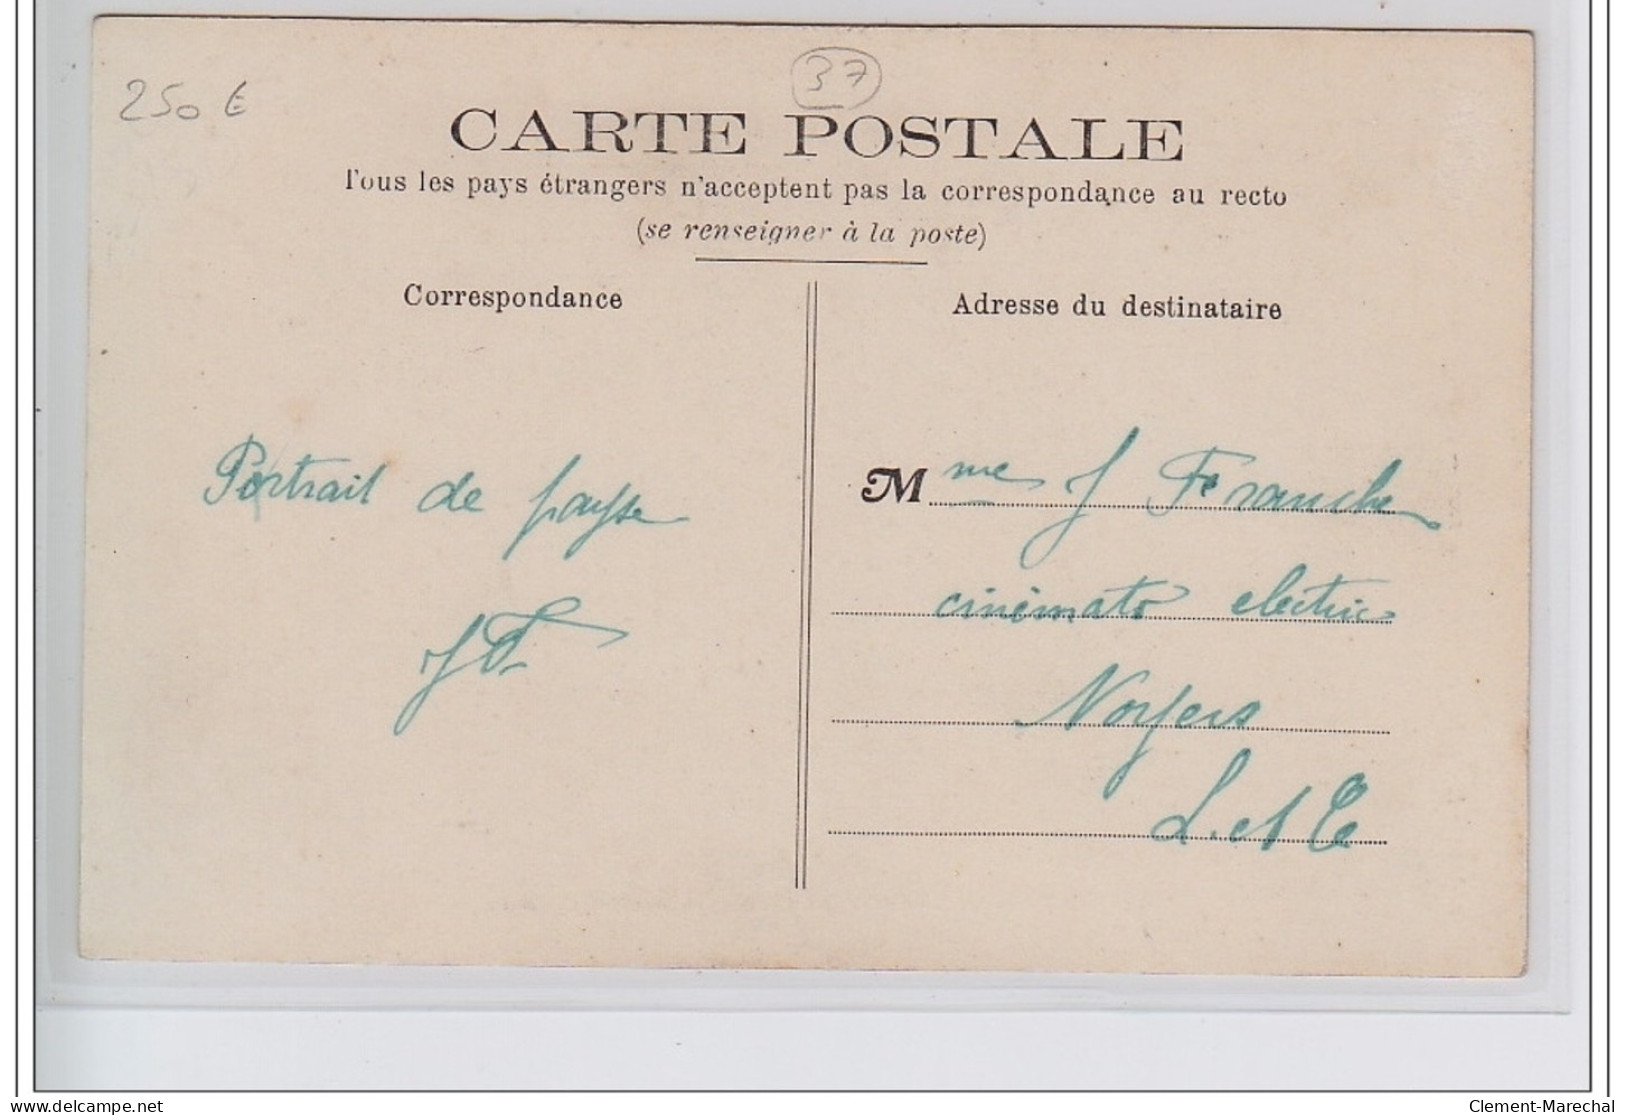 250 €
37
CARTE POSTALE
Tous les pays étrangers n'acceptent pas la correspondance au recto
(se renseigner à la poste)
Correspondance
Adresse du destinataire
Portrait de
JF
Mme J Franche
cinémato electric
Noyers
L. et C
delcampe.net
Clement-Marechal